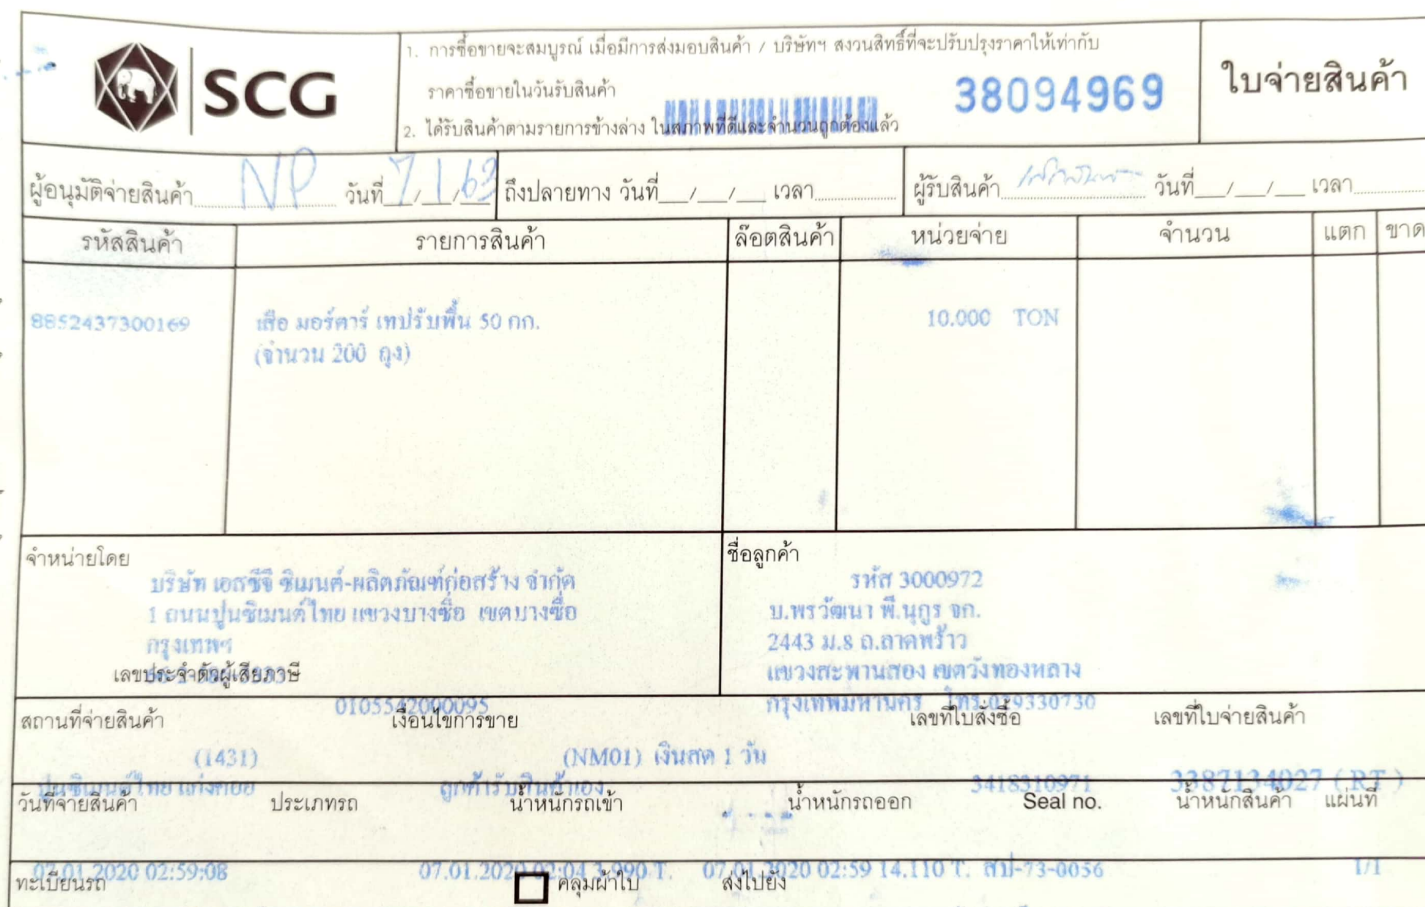 SCG
1. การซื้อขายจะสมบูรณ์ เมื่อมีการส่งมอบสินค้า / บริษัทฯ สงวนสิทธิ์ที่จะปรับปรุงราคาให้เท่ากับ
ราคาซื้อขายในวันรับสินค้า
2. ได้รับสินค้าตามรายการข้างล่าง ในสภาพที่ดีและจำนวนถูกต้องแล้ว
38094969
ใบจ่ายสินค้า
ผู้อนุมัติจ่ายสินค้า NP วันที่ 7/1/63 ถึงปลายทาง วันที่ / / เวลา ผู้รับสินค้า วันที่ / / เวลา
รหัสสินค้า รายการสินค้า ล๊อตสินค้า หน่วยจ่าย จำนวน แตก ขาด
8852437300169 เสือ มอร์ตาร์ เทปรับพื้น 50 กก. 10.000 TON
(จำนวน 200 ถุง)
จำหน่ายโดย
บริษัท เอสซีจี ซิเมนต์-ผลิตภัณฑ์ก่อสร้าง จำกัด
1 ถนนปูนซิเมนต์ไทย แขวงบางซื่อ เขตบางซื่อ
กรุงเทพฯ
เลขประจำตัวผู้เสียภาษี
0105542000095
ชื่อลูกค้า
รหัส 3000972
บ.พรวัฒนา พี.นุกูร จก.
2443 ม.8 ถ.ลาดพร้าว
แขวงสะพานสอง เขตวังทองหลาง
กรุงเทพมหานคร โทร.029330730
สถานที่จ่ายสินค้า เงื่อนไขการขาย เลขที่ใบสั่งซื้อ เลขที่ใบจ่ายสินค้า
(1431) (NM01) เงินสด 1 วัน
ปูนซิเมนต์ไทย แก่งคอย ลูกค้ารับสินค้าเอง 3418310971 3387134027 (RT)
วันที่จ่ายสินค้า ประเภทรถ น้ำหนักรถเข้า น้ำหนักรถออก Seal no. น้ำหนักสินค้า แผ่นที่
07.01.2020 02:59:08 07.01.2020 02:04 3.990 T. 07.01.2020 02:59 14.110 T. สป-73-0056 1/1
ทะเบียนรถ คลุมผ้าใบ ส่งไปยัง